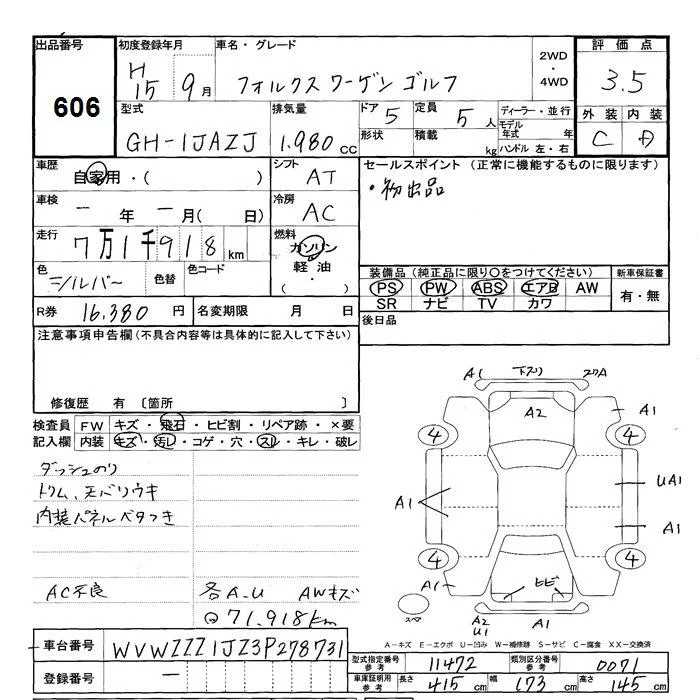 出品番号 初度登録年月 車名・グレード 2WD・4WD 評価点
606 H15 9月 フォルクスワーゲン ゴルフ 3.5
型式 排気量 ドア 5 定員 5人 ディーラー・並行 外装 内装
GH-1JAZJ 1,980 CC 形状 積載 kg モデル年式 年 ハンドル 左・右 C D
車歴 シフト セールスポイント (正常に機能するものに限ります)
自家用・( ) AT ・初出品
車検 冷房
ー年ー月( 日) AC
走行 燃料
7万1千918km ガソリン
軽油
・( )
色 色替 色コード
シルバー
装備品 (純正品に限り○をつけてください) 新車保証書
PS PW ABS エアB AW 有・無
SR ナビ TV カワ
R券 16,380円 名変期限 月 日 後日品
注意事項申告欄 (不具合内容等は具体的に記入して下さい)
修復歴 有 〔箇所 〕
検査員 FW キズ・飛石・ヒビ割・リペア跡・×要
記入欄 内装 キズ・汚レ・コゲ・穴・スレ・キレ・破レ
ダッシュのり
トリム、天バリウキ
内装パネルベタつき
AC不良 各A.U AWキズ
71,918km
A1 下スリ A
A2 A1
4 4
UA1
A1 A1
4 4
A1 ヒビ
スペア A2 U1 A1
A-キズ E-エクボ U-凹み W-補修跡 S-サビ C-腐食 XX-交換済
車台番号 WVWZZZ1JZ3P278731
登録番号 ー
型式指定番号 参考 11472 類別区分番号 参考 0071
車庫証明用 参考 長さ 415cm 幅 173cm 高さ 145cm